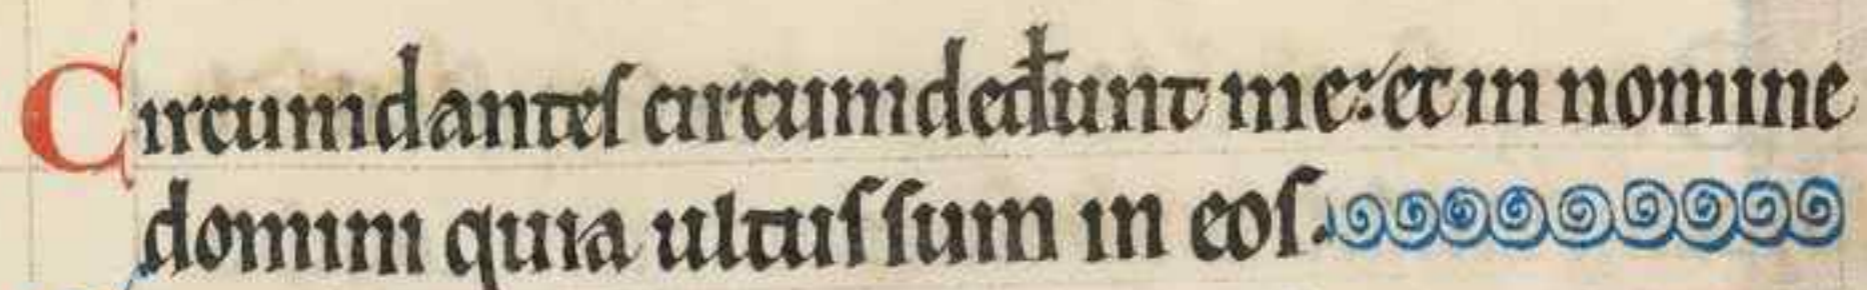 Circumdanteſ circumdedłunt me: et in nomine
domini quia ultuſ ſum in eoſ.